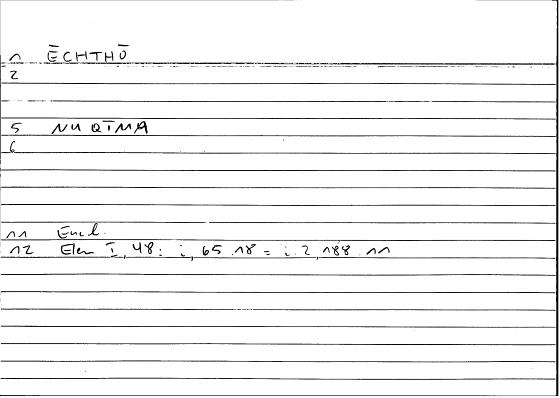 1 ĒCHTHŪ
2
5 NU QĪMA
6
11 Eucl.
12 Elem I, 48: i, 65.18 = i. 2, 188.11